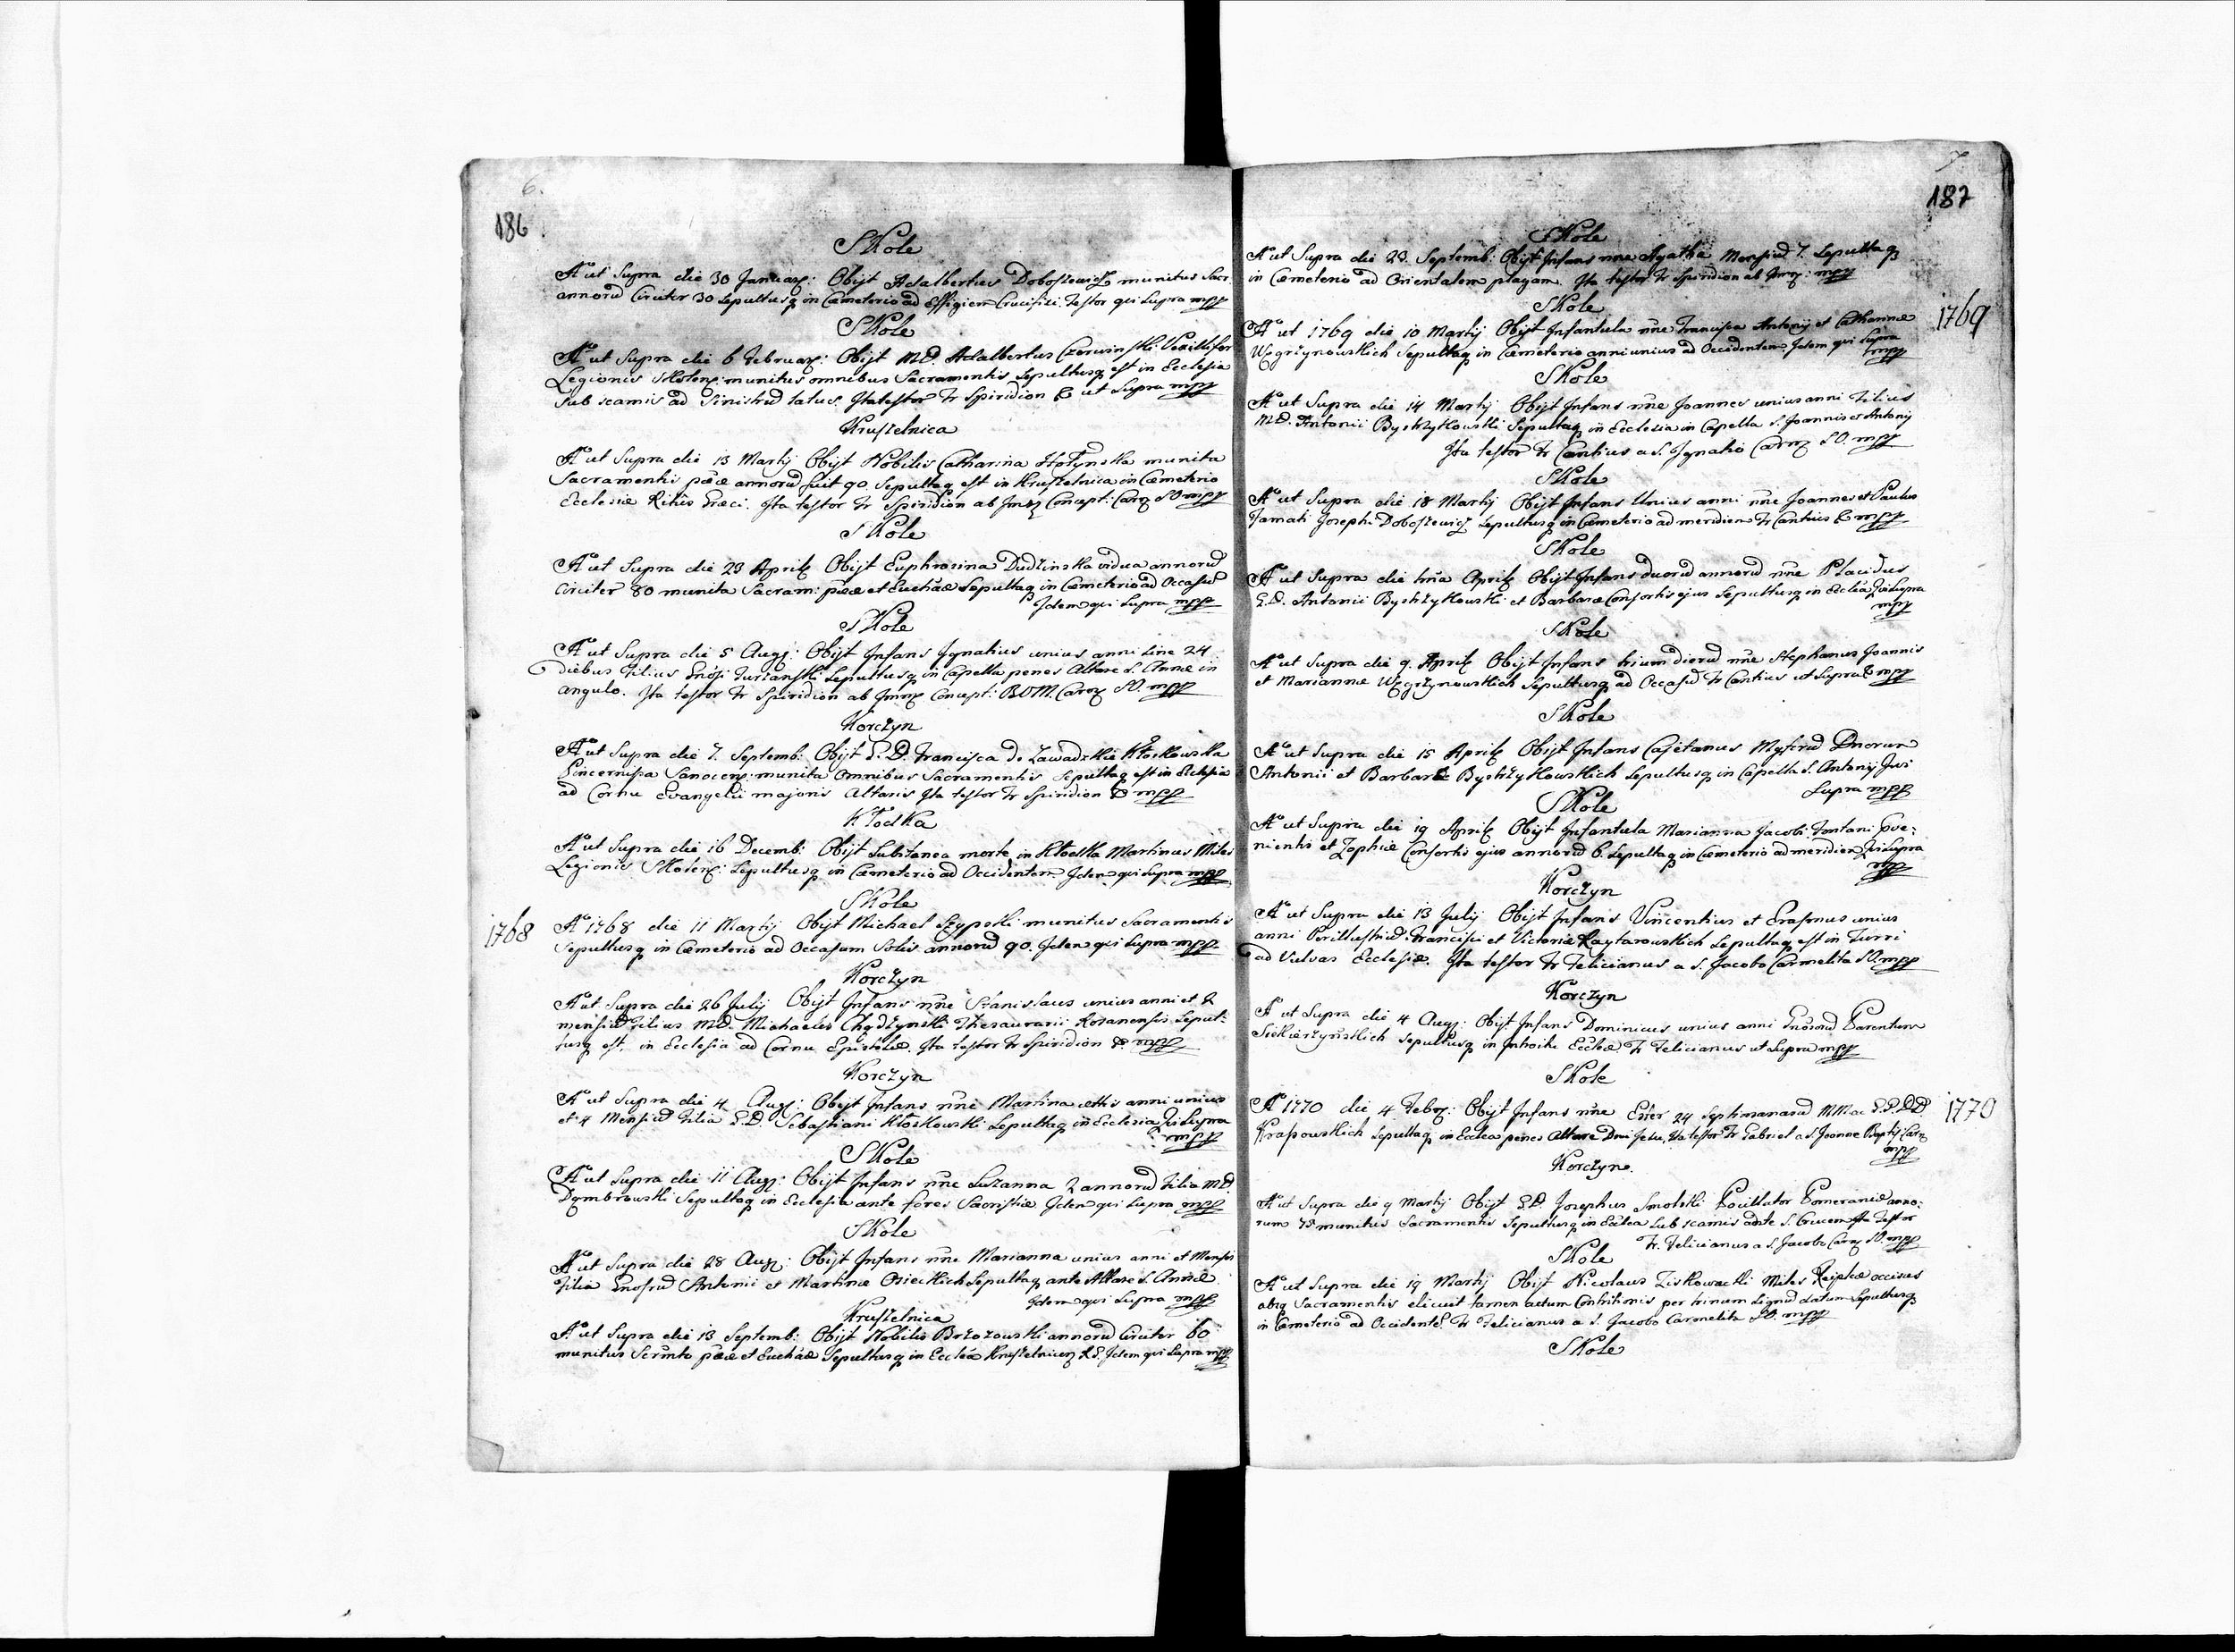 6.
186
Skole
Aº ut Supra die 30 Januarÿ: Obijt Adalbertus Doboszewicz munitus Sacr:
annorũ Circiter 30 Sepultusq̃ in Cæmeterio ad Effigiem Crucifixi. Testor qui Supra mpp
Skole
Aº ut Supra die 6 Februarÿ: Obijt MD. Adalbertus Czerwinski Vexillifer
Legionis Skolen: munitus omnibus Sacramentis Sepultusq̃ est in Ecclesia
sub scamis ad Sinistrũ latus. Ita testor Fr Spiridion & ut Supra mpp
Kruszelnica
Aº ut Supra die 13 Martij Obijt Nobilis Catharina Hołynska munita
Sacramentis pœæ annorũ fuit 90. Sepultaq̃ est in Kruszelnica in Cæmeterio
Ecclesiæ Ritus Græci. Ita testor Fr Spiridion ab Imã Concept: Carm SO mpp
Skole
Aº ut Supra die 23 Aprilẽ Obijt Euphrosina Dudzinska vidua annorũ
Circiter 80 munita Sacram: pœæ et Euchãæ Sepultaq̃ in Cæmeterio ad Occasũ
Idem qui Supra mpp
Skole
Aº ut Supra die 5 Augÿ: Obijt Infans Ignatius unius anni sine 24
diebus Filius Gnosi Turzanski Sepultusq̃ in Capella penes Altare S. Annæ in
angulo. Ita testor Fr Spiridion ab Imm Concept: BVM. Carm SO. mpp
Korczyn
Aº ut Supra die 7. Septemb: Obijt G.D. Francisca de Zawadzkie Kłoskowska
Pincernissa Sanocen: munita Omnibus Sacramentis Sepultaq̃ est in Ecclesia
ad Cornu Evangelii majoris Altaris Ita testor Fr Spiridion & mpp
Kłodka
Aº ut Supra die 16 Decemb: Obijt Subitanea morte in Kłodka Martinus Miles
Legionis Skolen: Sepultusq̃ in Cæmeterio ad Occidentem. Idem qui Supra mpp
Skole
1768
Aº 1768 die 11 Martij Obijt Michael Szypski munitus Sacramentis
Sepultusq̃ in Cæmeterio ad Occasum Solis annorũ 90. Idem qui Supra mpp
Korczyn
Aº ut Supra die 26 Julij Obijt Infans nñe Stanislaus unius anni et 2
mensiũ Filius MD. Michaelis Chądzynski Thesaurarii Rosanensis Sepul-
tusq̃ est. in Ecclesia ad Cornu Epistolæ. Ita testor Fr Spiridion &. mpp
Korczyn
Aº ut Supra die 4 Augÿ: Obijt Infans nñe Martina ættis anni unius
et 4 Mensiũ Filia G.D. Sebastiani Kłoskowski Sepultaq̃ in Ecclesia Qui Supra
mpp
Skole
Aº ut Supra die 11 Augÿ: Obijt Infans nñe Suzanna 2 annorũ Filia MD
Dąmbrowski Sepultaq̃ in Ecclesia ante fores Sacristiæ Idem qui Supra mpp
Skole
Aº ut Supra die 28 Augÿ: Obijt Infans nñe Marianna unius anni et Mensis
Filia Gnosrũ Antonii et Martinæ Osieckich Sepultaq̃ ante Altare S. Annæ
Idem qui Supra mpp
Kruszelnica
Aº ut Supra die 13 Septemb: Obijt Nobilis Brzozowski annorũ Circiter 60
munitus Scrũto pœæ et Euchãæ Sepultusq̃ in Ecclẽa Kruszelnicen R.G. Idem qui Supra mpp
7
187
Skole
Aº ut Supra die 23. Septemb: Obijt Infans nñe Agatha Mensiũ 7. Sepultaq̃
in Cæmeterio ad Orientalem plagam. Ita testor Fr Spiridion ab Imm: mpp
Skole
1769
Aº ut 1769 die 10 Martij Obijt Infantula nñe Francisca Antonij et Catharinæ
Węgrzynowskich Sepultaq̃ in Cæmeterio anni unius ad Occidentem. Idem qui Supra
mpp
Skole
Aº ut Supra die 14 Martij Obijt Infans nñe Joannes unius anni Filius
MD. Antonii Bystrzykowski Sepultaq̃ in Ecclesia in Capella S. Joannis et Antonij
Ita testor Fr Cantius a S. Ignatio Carm SO. mpp
Skole
Aº ut Supra die 18 Martij Obijt Infans Unius anni nñe Joannes et Paulus
Famati Josephi Doboszewicz Sepultusq̃ in Cæmeterio ad meridiem Fr Cantius & mpp
Skole
Aº ut Supra die 1ma Aprilẽ Obijt Infans duorũ annorũ nñe Placidus
G.D. Antonii Bystrzykowski et Barbaræ Consortis ejus Sepultusq̃ in Ecclẽa Qui Supra
mpp
Skole
Aº ut Supra die 9. Aprilẽ Obijt Infans trium dierũ nñe Stephanus Joannis
et Mariannæ Węgrzynowskich Sepultusq̃ ad Occasũ Fr Cantius ut Supra & mpp
Skole
Aº ut Supra die 15 Aprilẽ Obijt Infans Cajetanus Mgficrũ Dnorum
Antonii et Barbaræ Bystrzykowskich Sepultusq̃ in Capella S. Antonij Qui
Supra mpp
Skole
Aº ut Supra die 19 Aprilẽ Obijt Infantula Marianna Jacobi Fontani Προve-
nientis et Zophiæ Consortis ejus annorũ 6. Sepultaq̃ in Cæmeterio ad meridiem Qui Supra
mpp
Korczyn
Aº ut Supra die 13 Julij Obijt Infans Vincentius et Erasmus unius
anni Perillustriũ Francisci et Victoriæ Raytarowskich Sepultaq̃ est in Turri
ad Valvas Ecclesiæ. Ita testor Fr Felicianus a S. Jacobo Carmelita SO. mpp
Korczyn
A ut Supra die 4 Augÿ: Obijt Infans Dominicus unius anni Gnosorũ Parentum
Siekierzyńskich Sepultusq̃ in Introitu Ecclæ Fr Felicianus ut Supra mpp
Skole
1770
Aº 1770 die 4 Febr: Obijt Infans nñe Ester 24 Septimanarũ MMae G.G.D.D.
Krasowskich Sepultaq̃ in Ecclea penes Altare Dni Jesu, Ita testor Fr Gabriel a S. Joanne Baptis: Carm
mpp
Korczyn.
Aº ut Supra die 9 Martij Obijt G.D. Josephus Smolski Pocillator Pomeraniæ anno-
rum 78 munitus Sacramentis Sepultusq̃ in Ecclea Sub scamis ante S. Crucem Ita Testor
Fr. Felicianus a S. Jacobo Carm SO. mpp
Skole
Aº ut Supra die 19 Martij Obijt Nicolaus Liskowacki Miles Reiplcæ occisus
absq̃ Sacramentis elicuit tamen actum Contritionis per trinum Signũ datum Sepultusq̃
in Cæmeterio ad Occidentẽ Fr Felicianus a S. Jacobo Carmelita SO. mpp
Skole